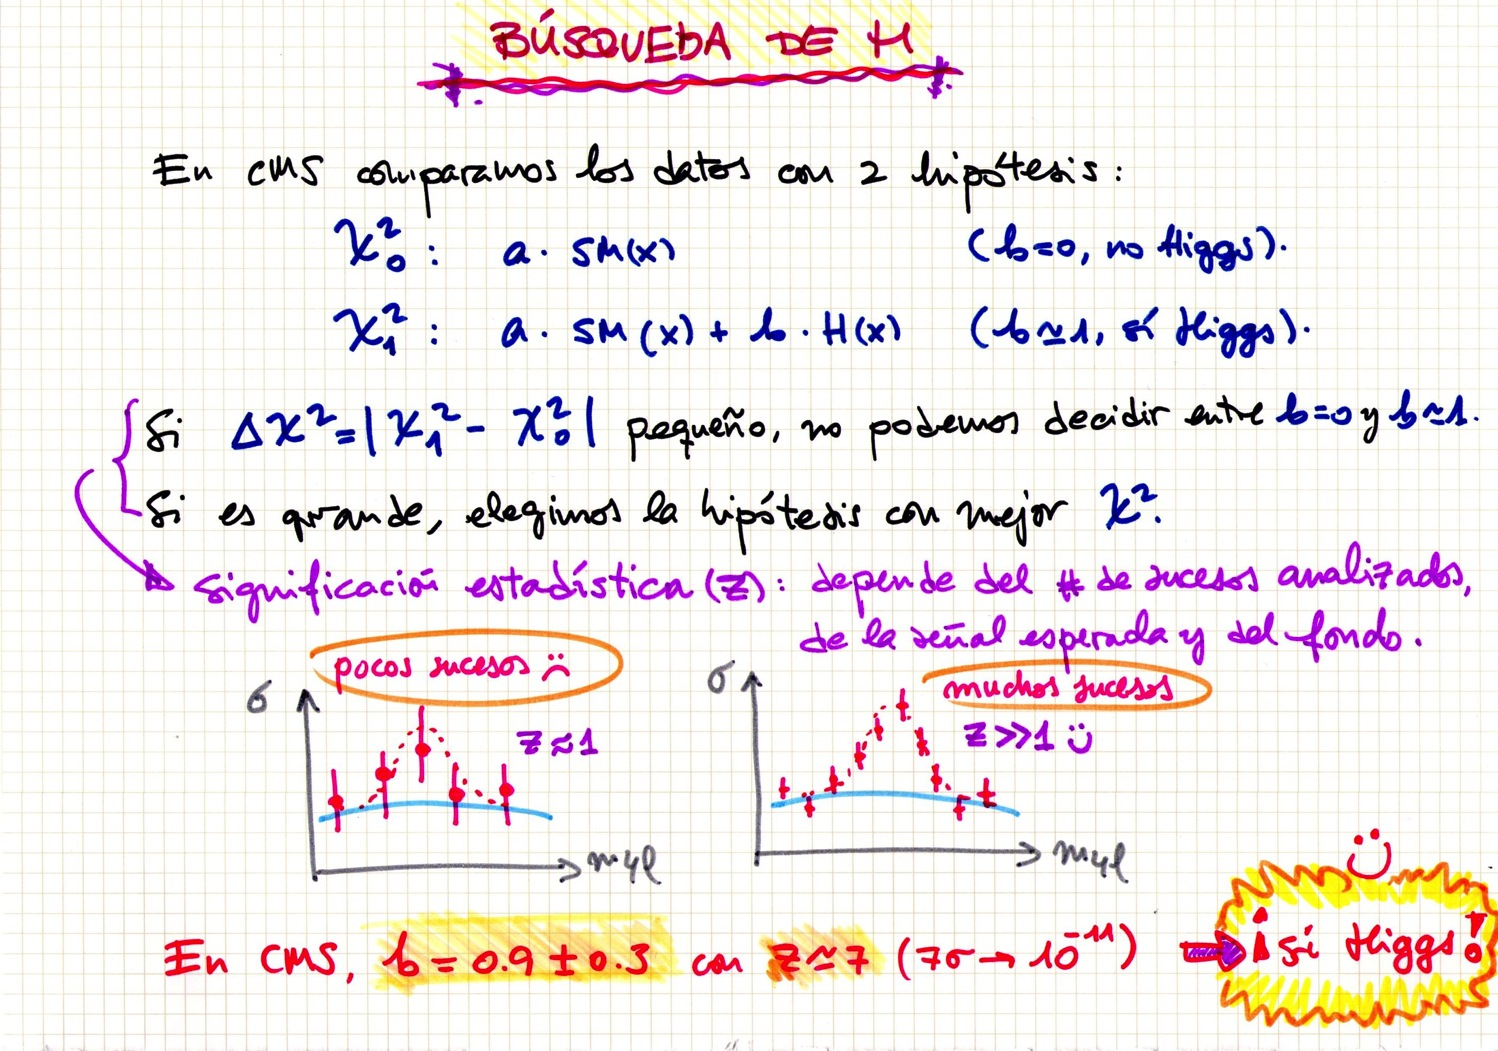 BÚSQUEDA DE H
En CMS comparamos los datos con 2 hipótesis:
χ²₀ : a · SM(x) (b=0, no Higgs).
χ²₁ : a · SM(x) + b · H(x) (b≃1, sí Higgs).
Si Δχ² = |χ²₁ - χ²₀| pequeño, no podemos decidir entre b=0 y b≃1.
Si es grande, elegimos la hipótesis con mejor χ².
Significación estadística (Z): depende del # de sucesos analizados,
de la señal esperada y del fondo.
pocos sucesos :(
σ
Z≈1
m4l
muchos sucesos
σ
Z>>1 :)
m4l
En CMS, b = 0.9 ± 0.3 con Z≃7 (7σ → 10⁻¹¹) ⇒ ¡Sí Higgs!